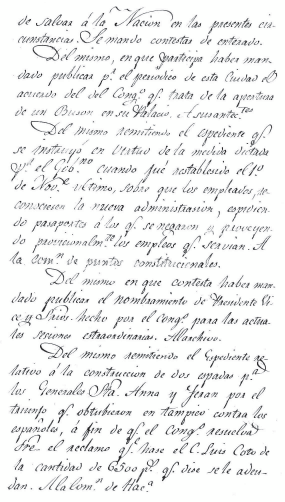 de salvar á la Nacion en las presentes cir-
cunstancias. Se mandó contestar de enterado.
Del mismo, en que participa haber man-
dado publicar p.r el periodico de esta Ciudad el
acuerdo del del Cong.o q.e trata de la apertura
de un Buson en su Palacio. A sus ante.tes
Del mismo remitiendo el espediente q.e
se instruyó en vertud de la medida dictada
p.r el Gob.no cuando fué restablecido el 1.o
de Nov.e ultimo, sobre que los empleados, re-
conociesen la nueva administrasion, espidiendo
pasaportes á los q.e se negaron y proveyendo
provicionalm.te los empleos q.e servian. A
la Com.n de puntos constitucionales.
Del mismo en que contesta haber man-
dado publicar el nombramiento de Presidente Vi-
ce y Srios. hecho por el Cong.o para las actua-
les seciones estraordinarias. Al archivo.
Del mismo remitiendo el Espediente re-
lativo á la construccion de dos espadas p.a
los Generales Sta. Anna y Teran por el
triunfo q.e obtubieron en Tampico contra los
españoles, á fin de q.e el Cong.o resuelva
sre. el reclamo q.e hase el C. Luis Coto de
la cantidad de 6500 p.s q.e dise se le adeu-
dan. A la Com.n de Hac.a